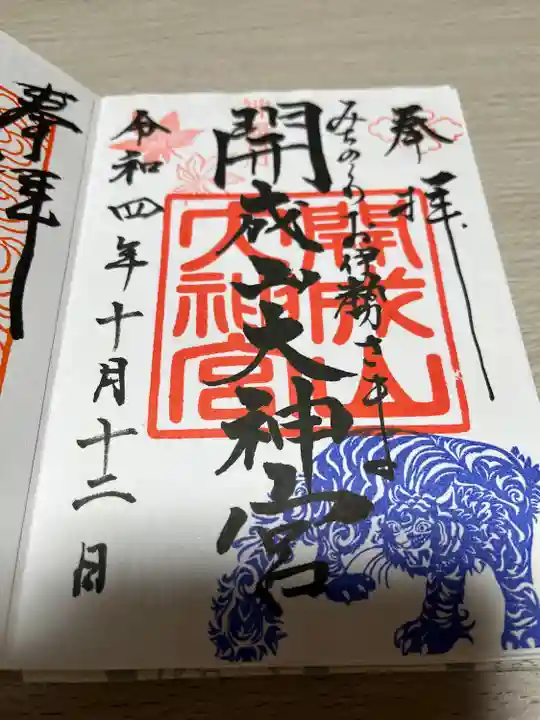 奉拝
みちのくのお伊勢さま
開成山大神宮
開成山
大神宮
令和四年十月十二日
奉拝